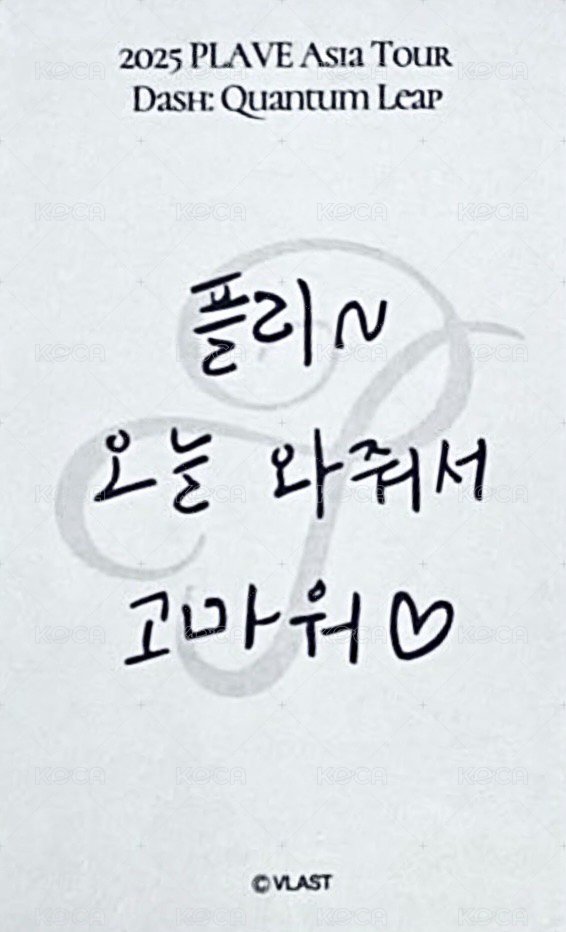 2025 PLAVE Asia Tour
Dash: Quantum Leap
플리~
오늘 와줘서
고마워♡
© VLAST
KOCA